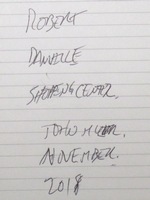 ROBERT
DANVILLE
SHOPPING CENTER.
JOHN
NOVEMBER.
2018